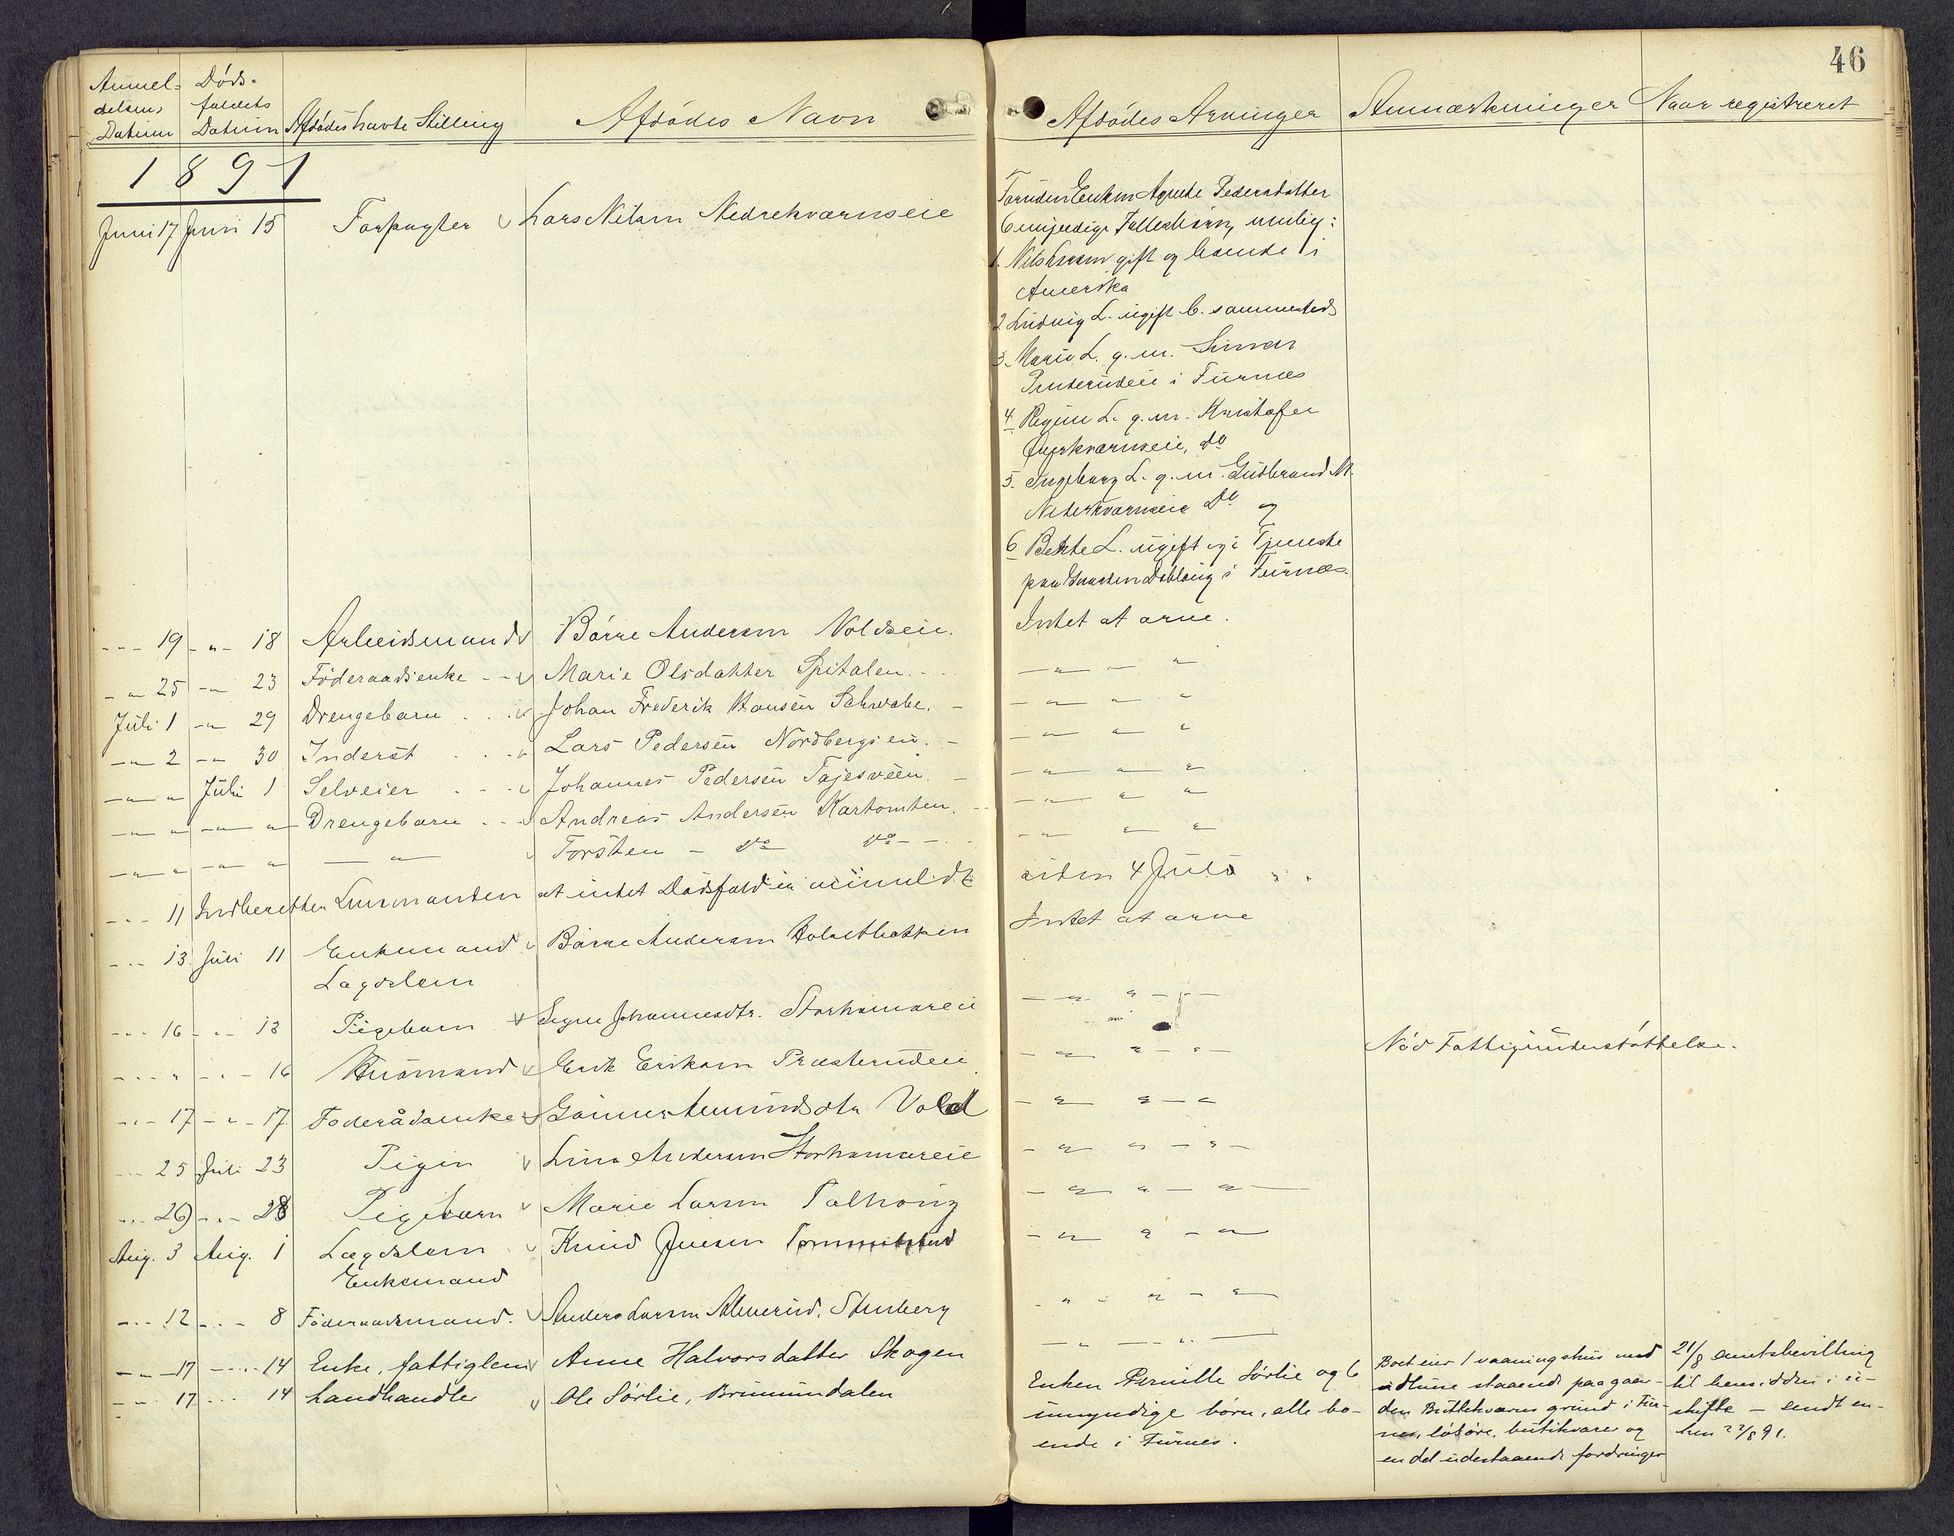 46
Anmel- Døds-
delsens faldets
Datum Datum Afdødes havte Stilling Afdødes Navn Afdødes Arvinger Anmærkninger Naar registreret
1891
Juni 17 Juni 15 Forpagter Lars Nilsen Nedrekværnseie
Foruden Enken Agnethe Pedersdatter
6 myndige Fællesbørn, nemlig:
1. Nils Larsen gift og boende i
Amerika
2 Ludvig L. ugift b. sammesteds
3. Marie L. g. m. Simen
Prusterudeie i Furnæs
4 Regine L. g. m. Kristofer
Øvrekværnseie, do
5. Ingeborg L. g. m. Gudbrand N.
Nederkværnseie Do og
6 Berthe L. ugift og i Tjeneste
paa Gaarden Dobloug i Furnæs.
" 19 " 18 Arbeidsmand Børre Andersen Voldseie. Intet at arve.
" 25 " 23 Föderaadsenke Marie Olsdatter Spitalen. " "
Juli 1 " 29 Drengebarn Johan Frederik Hansen Schwabe. " "
" 2 " 30 Inderst Lars Pedersen Nordbergseie. " "
" " Juli 1 Selveier Johannes Pedersen Tajesveen. " " "
" " " " Drengebarn Andreas Andersen Kartomten. " " "
" " " " " Torsten do do " " "
" 11 Indberetter Lensmanden at intet Dødsfald er anmeldt siden 4 Juli
" 13 Juli 11 Enkemand Børre Andersen Holsetbakken Intet at arve
Lægdslem
" 16 " 13 Pigebarn Signe Johannesdtr. Storhamareie " " "
" " " 16 Husmand Erik Eriksen Præsterudeie " " " Nød Fattigunderstøttelse.
" 17 " 17 Foderådsenke Gønner Amundsdtr Vold " " "
" 25 Juli 23 Pigen Lina Andersen Storhamareie " " "
" 29 " 28 Pigebarn Marie Larsen Polhøug " " "
Aug. 3 Aug. 1 Lægdslem Knud Jensen Tommelstad " " "
Enkemand
" 12 " 8 Föderaadsmand. Anders Larsen Almerud, Stenberg " " "
" 17 " 14 Enke, fattiglem Anne Halvorsdatter Skogen " "
" 17 " 14 Landhandler Ole Sørlie, Brumunddalen
Enken Pernille Sørlie og 6
umyndige børn, alle bo-
ende i Furnes.
Boet eier 1 vaaningshus med
udhuse staaende paa gaar-
den Buttekværns grund i Fur-
nes, løsøre, butikvarer og
en del udestaaende fordringer
21/8 amtsbevilling
til hensidden i u-
skifte - sendt en-
ken 22/8 91.